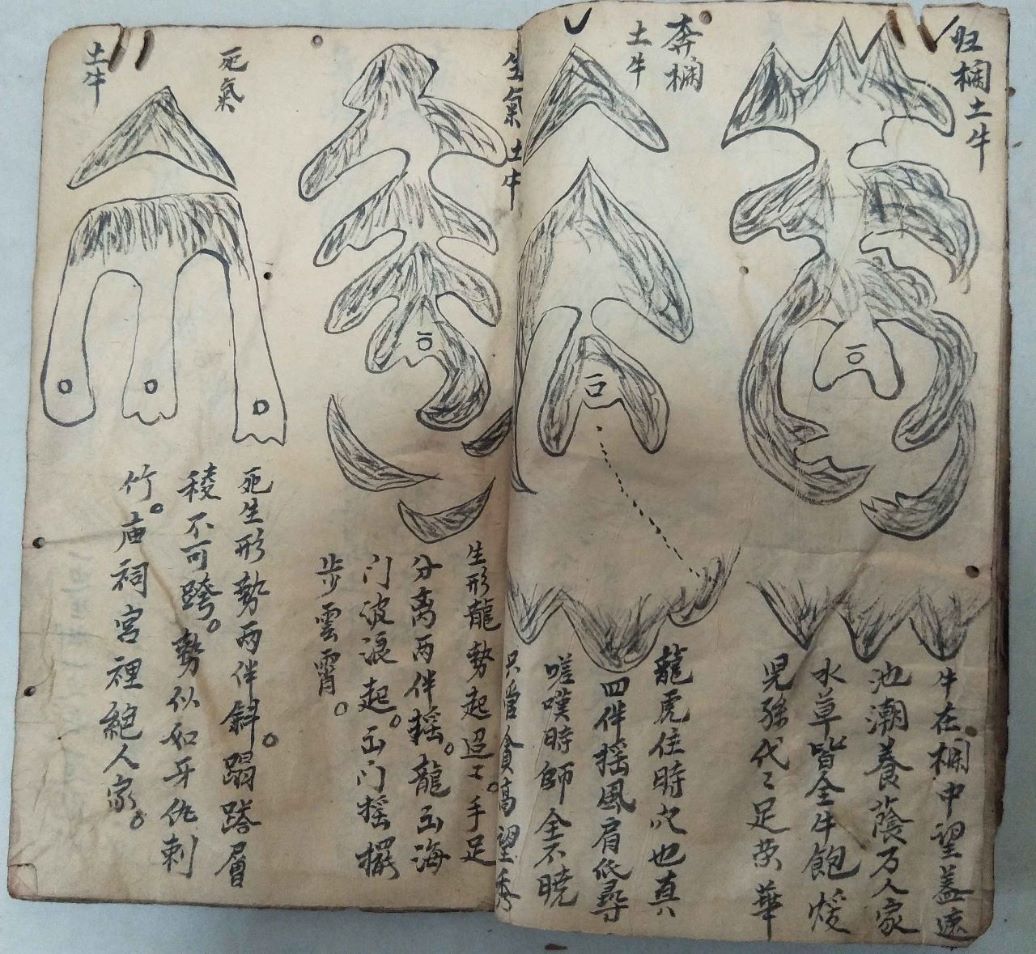 归欄土牛
牛在欄中望益遠
池潮養蔭万人家
水草皆全牛飽煖
児孫代〻足荣華
奔欄
土牛
龍虎住時穴也真
四伴摇風肩低尋
嗟嘆時師全不曉
只管貪高望秀
生氣土牛
生形龍勢起迢〻。手足
分离两伴摇。龍出海
门波浪起。出门摇擺
步雲霄。
死氣
土牛
死生形勢两伴斜。蹋踏層
稜不可跨。勢似如牙仇刺
竹。庙祠宮裡絕人家。